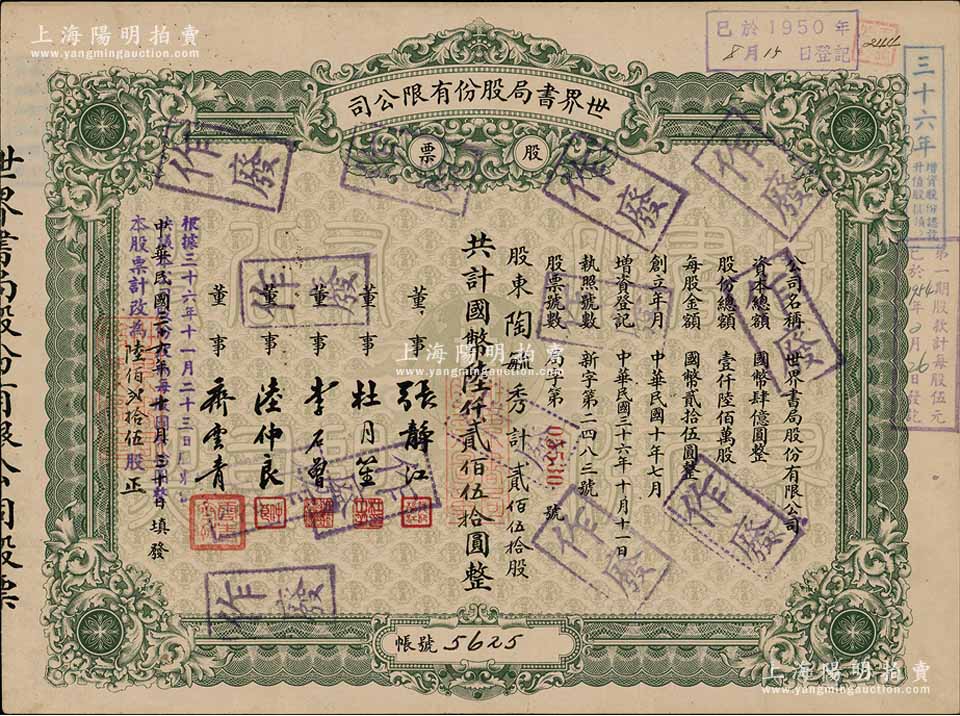 上海陽明拍賣
www.yangmingauction.com
上海陽明拍賣
www.yangmingauction.com
已於1950年
8月15日登記
三十六年
增資股份認訖
升值股
第一期股款計每股伍元
已於1954年2月26日發訖
世界書局股份有限公司
股票
公司名稱 世界書局股份有限公司
資本總額 國幣肆億圓整
股份總額 壹仟陸佰萬股
每股金額 國幣貳拾伍圓整
創立年月 中華民國十年七月
增資登記 中華民國三十六年十月十一日
執照號數 新字第二四八三號
股票號數 局字第 03510 號
股東 陶毓秀 計貳佰伍拾股
共計國幣陸仟貳佰伍拾圓整
董事 張靜江
董事 杜月笙
董事 李石曾
董事 陸仲良
董事 齊雲青
中華民國三十六年十月三十日填發
根據三十六年十一月二十三日
本股票計改為陸佰貳拾伍股正
作廢
作廢
作廢
作廢
作廢
作廢
作廢
作廢
作廢
作廢
帳號 5625
世界書局股份有限公司股票
上海陽明拍賣
www.yangmingauction.com
上海陽明拍賣
www.yangmingauction.com